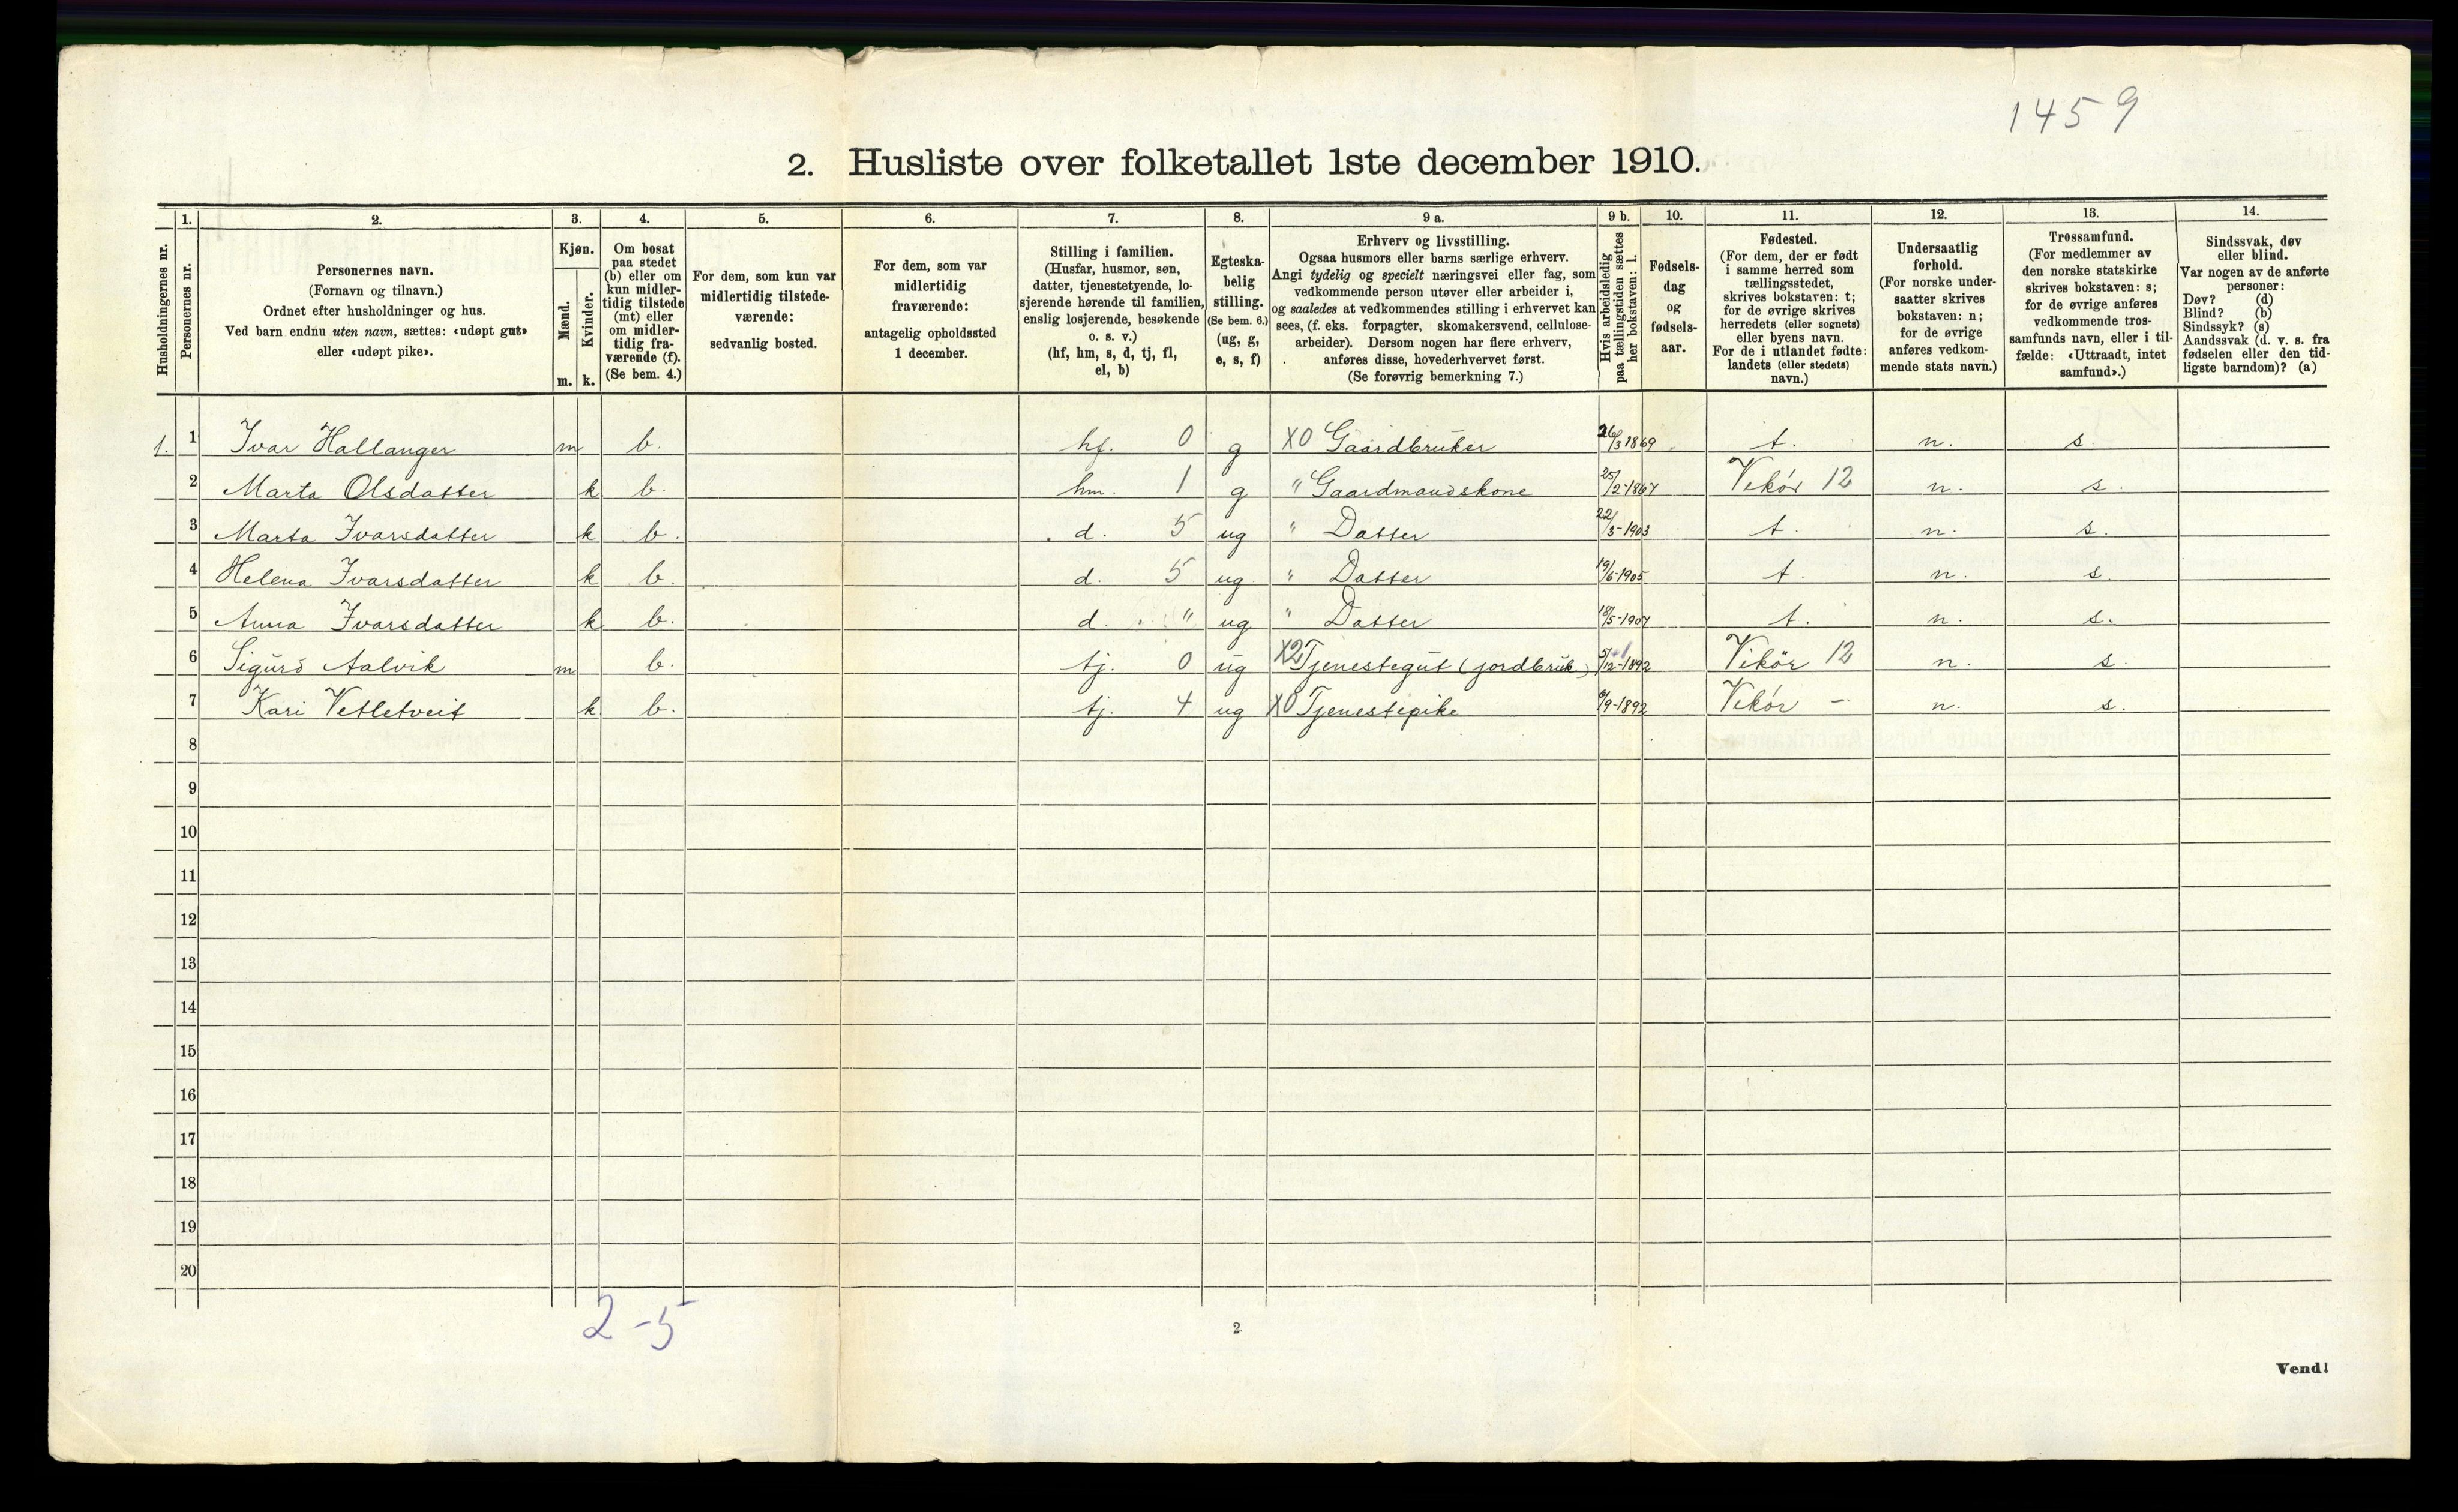 1459
2. Husliste over folketallet 1ste december 1910.
Husholdningernes nr.
1.
Personernes nr.
2.
Personernes navn.
(Fornavn og tilnavn.)
Ordnet efter husholdninger og hus.
Ved barn endnu uten navn, sættes: «udøpt gut»
eller «udøpt pike».
3.
Kjøn.
Mænd.
Kvinder.
m. k.
4.
Om bosat
paa stedet
(b) eller om
kun midler-
tidig tilstede
(mt) eller
om midler-
tidig fra-
værende (f).
(Se bem. 4.)
5.
For dem, som kun var
midlertidig tilstede-
værende:
sedvanlig bosted.
6.
For dem, som var
midlertidig
fraværende:
antagelig opholdssted
1 december.
7.
Stilling i familien.
(Husfar, husmor, søn,
datter, tjenestetyende, lo-
sjerende hørende til familien,
enslig losjerende, besøkende
o. s. v.)
(hf, hm, s, d, tj, fl,
el, b)
8.
Egteska-
belig
stilling.
(Se bem. 6.)
(ug, g,
e, s, f)
9 a.
Erhverv og livsstilling.
Ogsaa husmors eller barns særlige erhverv.
Angi tydelig og specielt næringsvei eller fag, som
vedkommende person utøver eller arbeider i,
og saaledes at vedkommendes stilling i erhvervet kan
sees, (f. eks. forpagter, skomakersvend, cellulose-
arbeider). Dersom nogen har flere erhverv,
anføres disse, hovederhvervet først.
(Se forøvrig bemerkning 7.)
9 b.
Hvis arbeidsledig
paa tællingstiden sættes
her bokstaven: l.
10.
Fødsels-
dag
og
fødsels-
aar.
11.
Fødested.
(For dem, der er født
i samme herred som
tællingsstedet,
skrives bokstaven: t;
for de øvrige skrives
herredets (eller sognets)
eller byens navn.
For de i utlandet fødte:
landets (eller stedets)
navn.)
12.
Undersaatlig
forhold.
(For norske under-
saatter skrives
bokstaven: n;
for de øvrige
anføres vedkom-
mende stats navn.)
13.
Trossamfund.
(For medlemmer av
den norske statskirke
skrives bokstaven: s;
for de øvrige anføres
vedkommende tros-
samfunds navn, eller i til-
fælde: «Uttraadt, intet
samfund».)
14.
Sindssvak, døv
eller blind.
Var nogen av de anførte
personer:
Døv? (d)
Blind? (b)
Sindssyk? (s)
Aandssvak (d. v. s. fra
fødselen eller den tid-
ligste barndom)? (a)
1. 1 Ivar Hallanger m b. hf. 0 g X0 Gaardbruker 26/3 1869 t. n. s.
2 Marta Olsdatter k b. hm. 1 g " Gaardmandskone 25/2-1867 Vikör 12 n. s.
3 Marta Ivarsdatter k b. d. 5 ug " Datter 22/3-1903 t. n. s.
4 Helena Ivarsdatter k b. d. 5 ug " Datter 19/6-1905 t. n. s.
5 Anna Ivarsdatter k b. d. " ug " Datter 18/5-1907 t. n. s.
6 Sigurd Aalvik m b. tj. 0 ug X2 Tjenestegut (jordbruk) 5/12-1892 Vikör 12 n. s.
7 Kari Vetletveit k b. tj. 4 ug X0 Tjenestepike /9-1892 Vikör - n. s.
8
9
10
11
12
13
14
15
16
17
18
19
20
2-5
2
Vend!